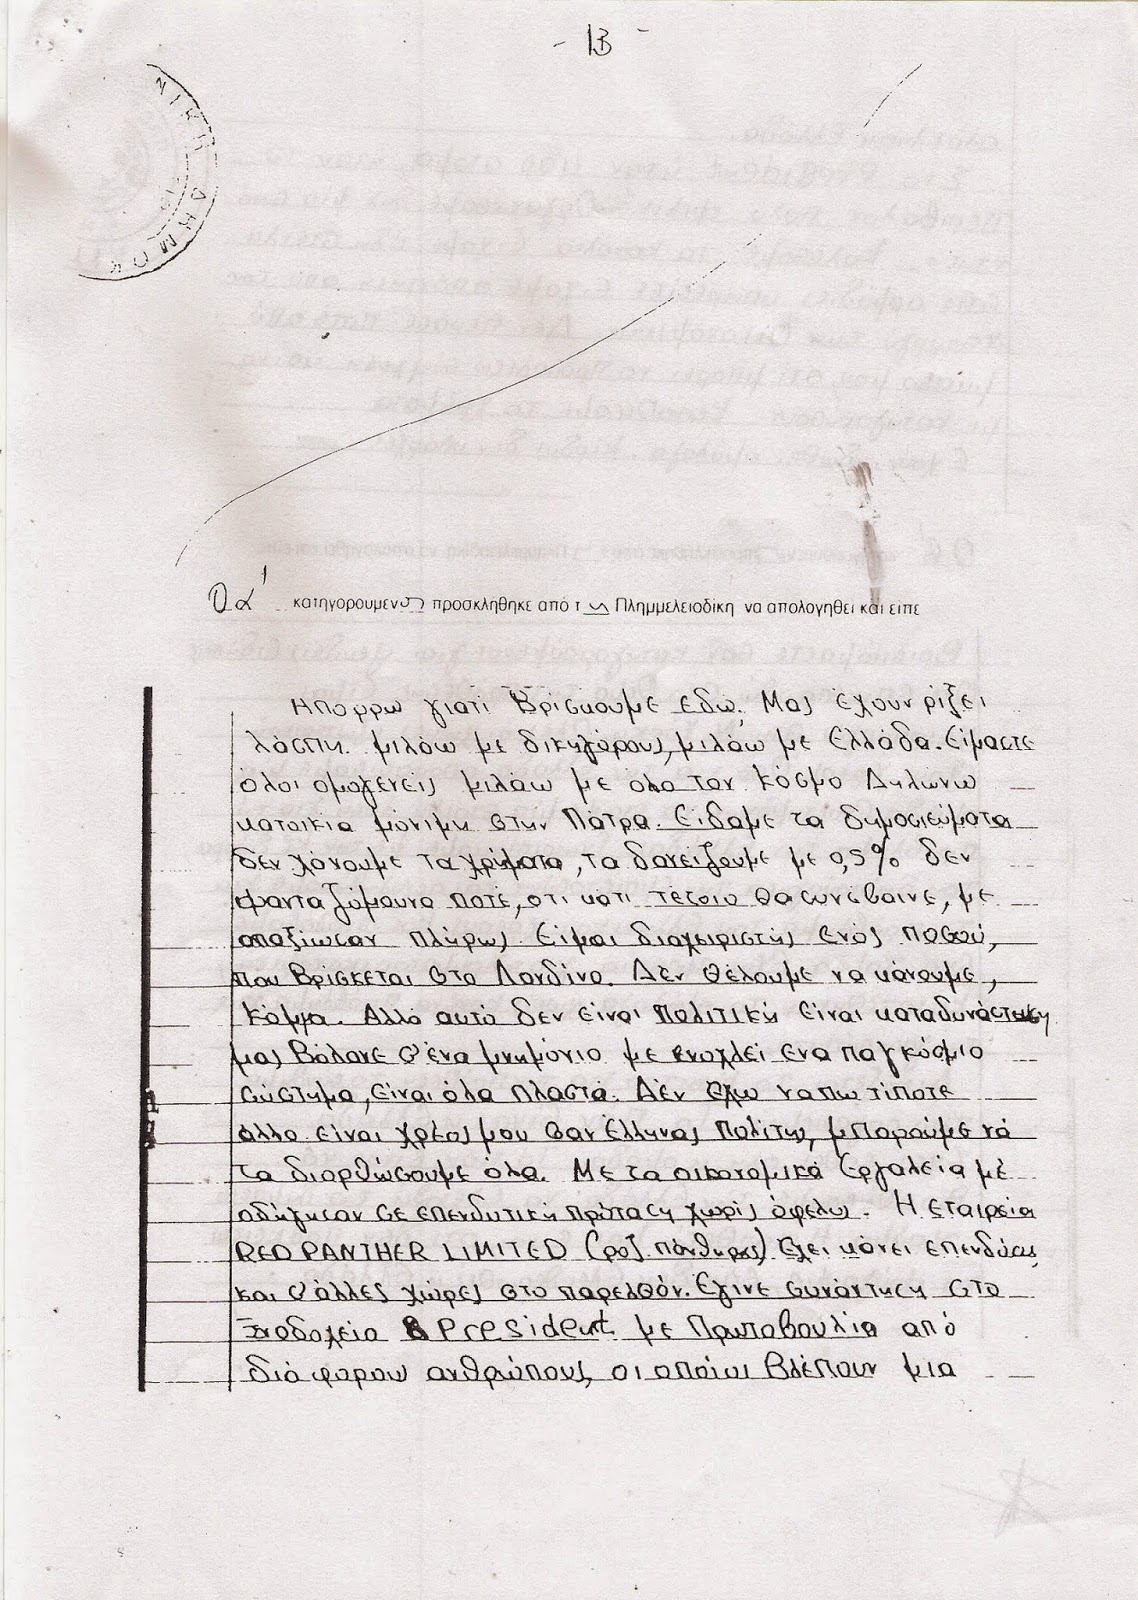 - 13 -
ΝΙΚΗ ΔΗΜΟΚ
Ο α' κατηγορουμενος προσκλήθηκε από τη Πλημμελειοδίκη να απολογηθεί και είπε
Απορρώ γιατί Βρίσκουμε εδώ. Μας έχουν ρίξει
λάσπη. μιλάω με δικηγόρους, μιλάω με Ελλάδα. Είμαστε
όλοι ομογενείς μιλάω με όλο τον κόσμο Δηλώνω
κατοικία μόνιμη στην Πάτρα. Είδαμε τα δημοσιεύματα
δεν χάνουμε τα χρήματα, τα δανείζουμε με 0,5% δεν
φανταζόμουνα ποτέ, οτι κάτι τέτοιο θα συνέβαινε, με
απαξίωσαν πλήρως Είμαι διαχειριστής ενός ποσού,
που Βρίσκεται στο Λονδίνο. Δεν θέλουμε να κάνουμε,
Κόμμα. Αλλά αυτό δεν είναι Πολιτική είναι καταδυνάστευση
μας Βάλανε σ'ένα μνημόνιο με ενοχλεί ενα παγκόσμιο
σύστημα, είναι όλα πλαστά. Δεν έχω να πω τίποτε
άλλο είναι χρέος μου σαν Έλληνας Πολίτης, μπορούμε νά
τα διορθώσουμε όλα. Με τα οικονομικά Εργαλεία μέ
οδήγησαν σε επενδυτική πρόταση χωρίς όφελος. Η εταιρεία
RED PANTHER LIMITED (ροζ πάνθηρας) έχει κάνει επενδύσεις
και σ'άλλες χώρες στο παρελθόν. Έγινε συνάντηση στο
Ξνοδοχείο President με Πρωτοβουλία από
διάφορους ανθρώπους οι οποίοι Βλέπουν μια